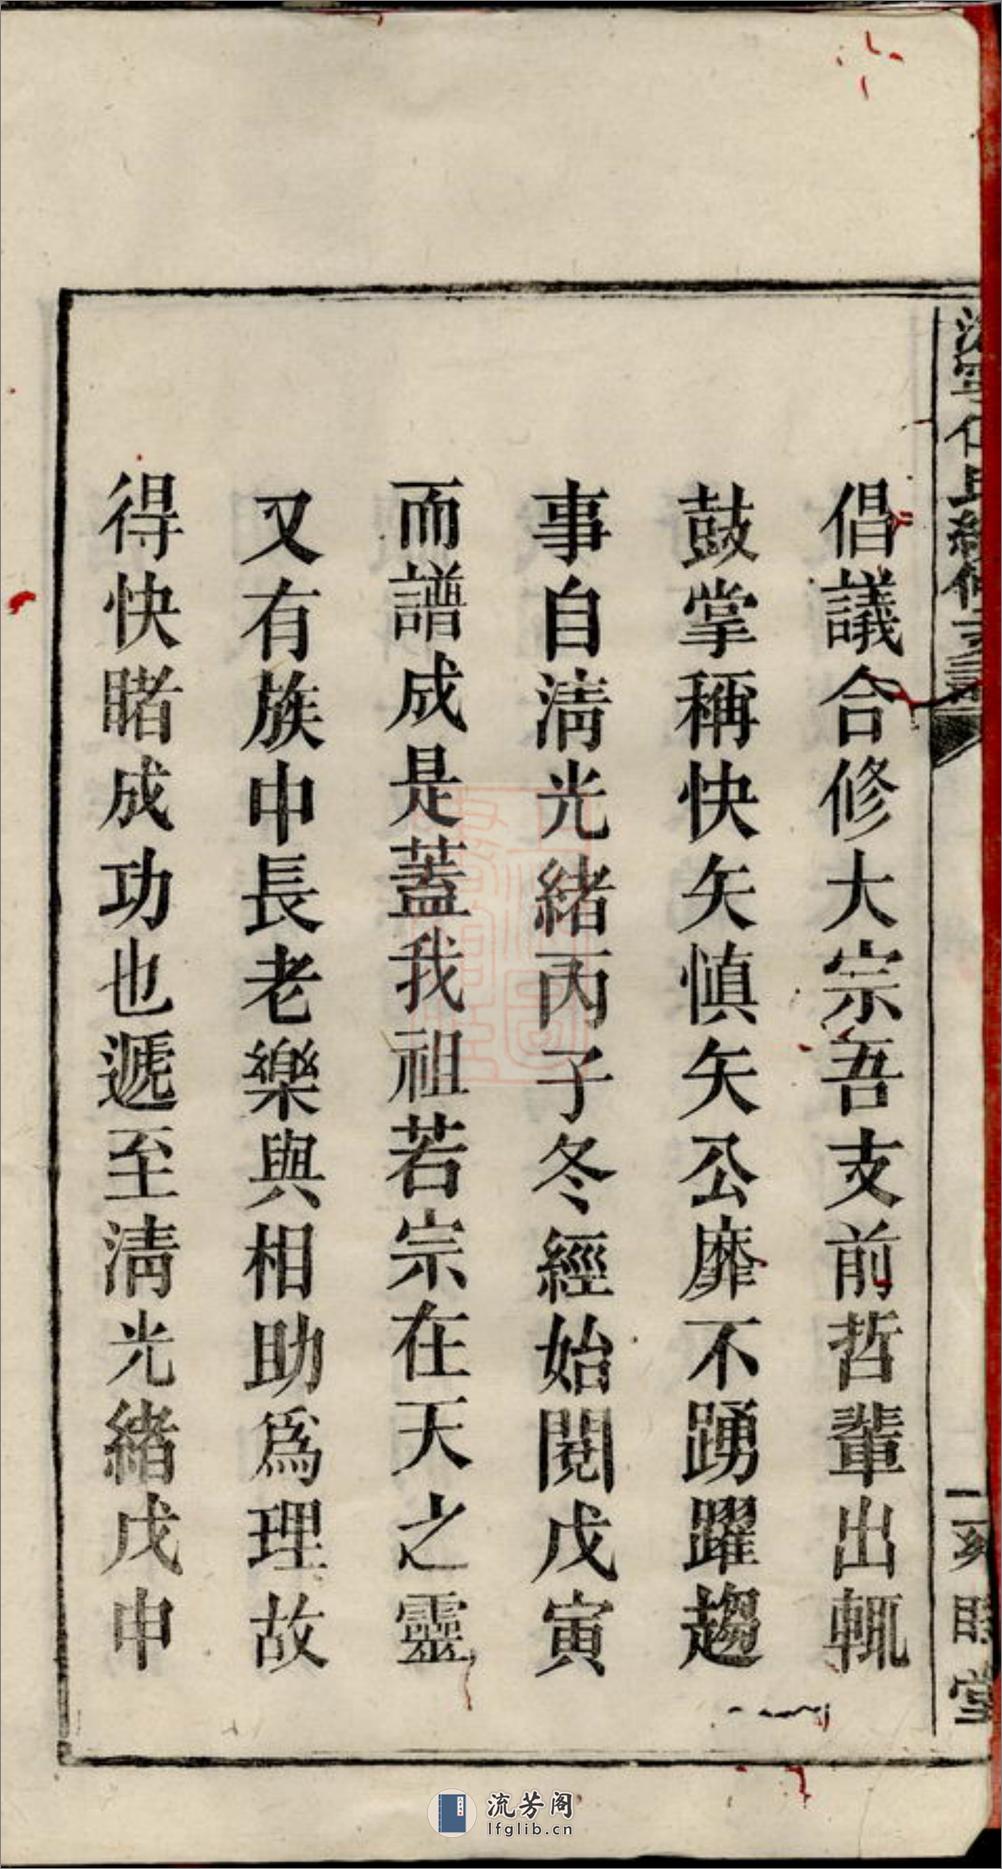 倡議合修大宗吾支前哲輩出輒
鼓掌稱快矢慎矢公靡不踴躍趨
事自淸光緒丙子冬經始閱戊寅
而譜成是蓋我祖若宗在天之靈
又有族中長老樂與相助爲理故
得快睹成功也遞至淸光緒戊申
流芳阁
lfglib.cn